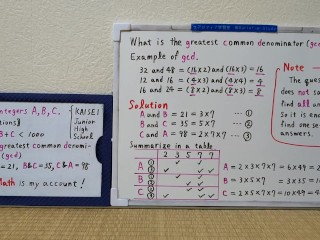 integers A, B, C.
KAISEI
Junior
High
School
B+C < 1000
greatest common denomin-
(gcd)
= 21, B&C = 35, C&A = 98
Math is my account!
What is the greatest common denominator (gcd
Example of gcd.
32 and 48 = (16×2) and (16×3) = 16
12 and 16 = (4×3) and (4×4) = 4
16 and 24 = (8×2) and (8×3) = 8
Solution
A and B = 21 = 3×7 ... ①
B and C = 35 = 5×7 ... ②
C and A = 98 = 2×7×7 ... ③
Summarize in a table
2 3 5 7 7
A ① ✓ ✓
③ ✓ ✓ ✓
B ①
②
C ②
③
A = 2×3×7×7 = 6×49 = 2
B = 3×5×7 = 3×35 = 10
C = 2×5×7×7 = 10×49 = 4
Note
The ques
does not s
find all an
So it is eno
find one se
answers.